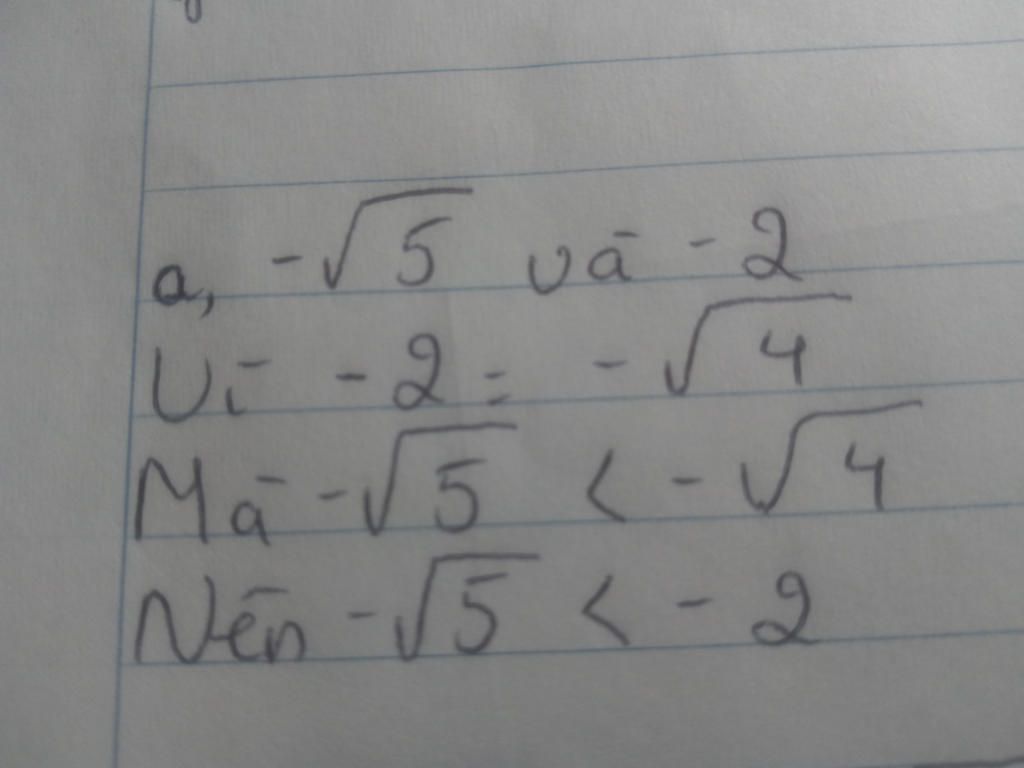 a, -√5 và -2
Vì -2 = -√4
Mà -√5 < -√4
Nên -√5 < -2